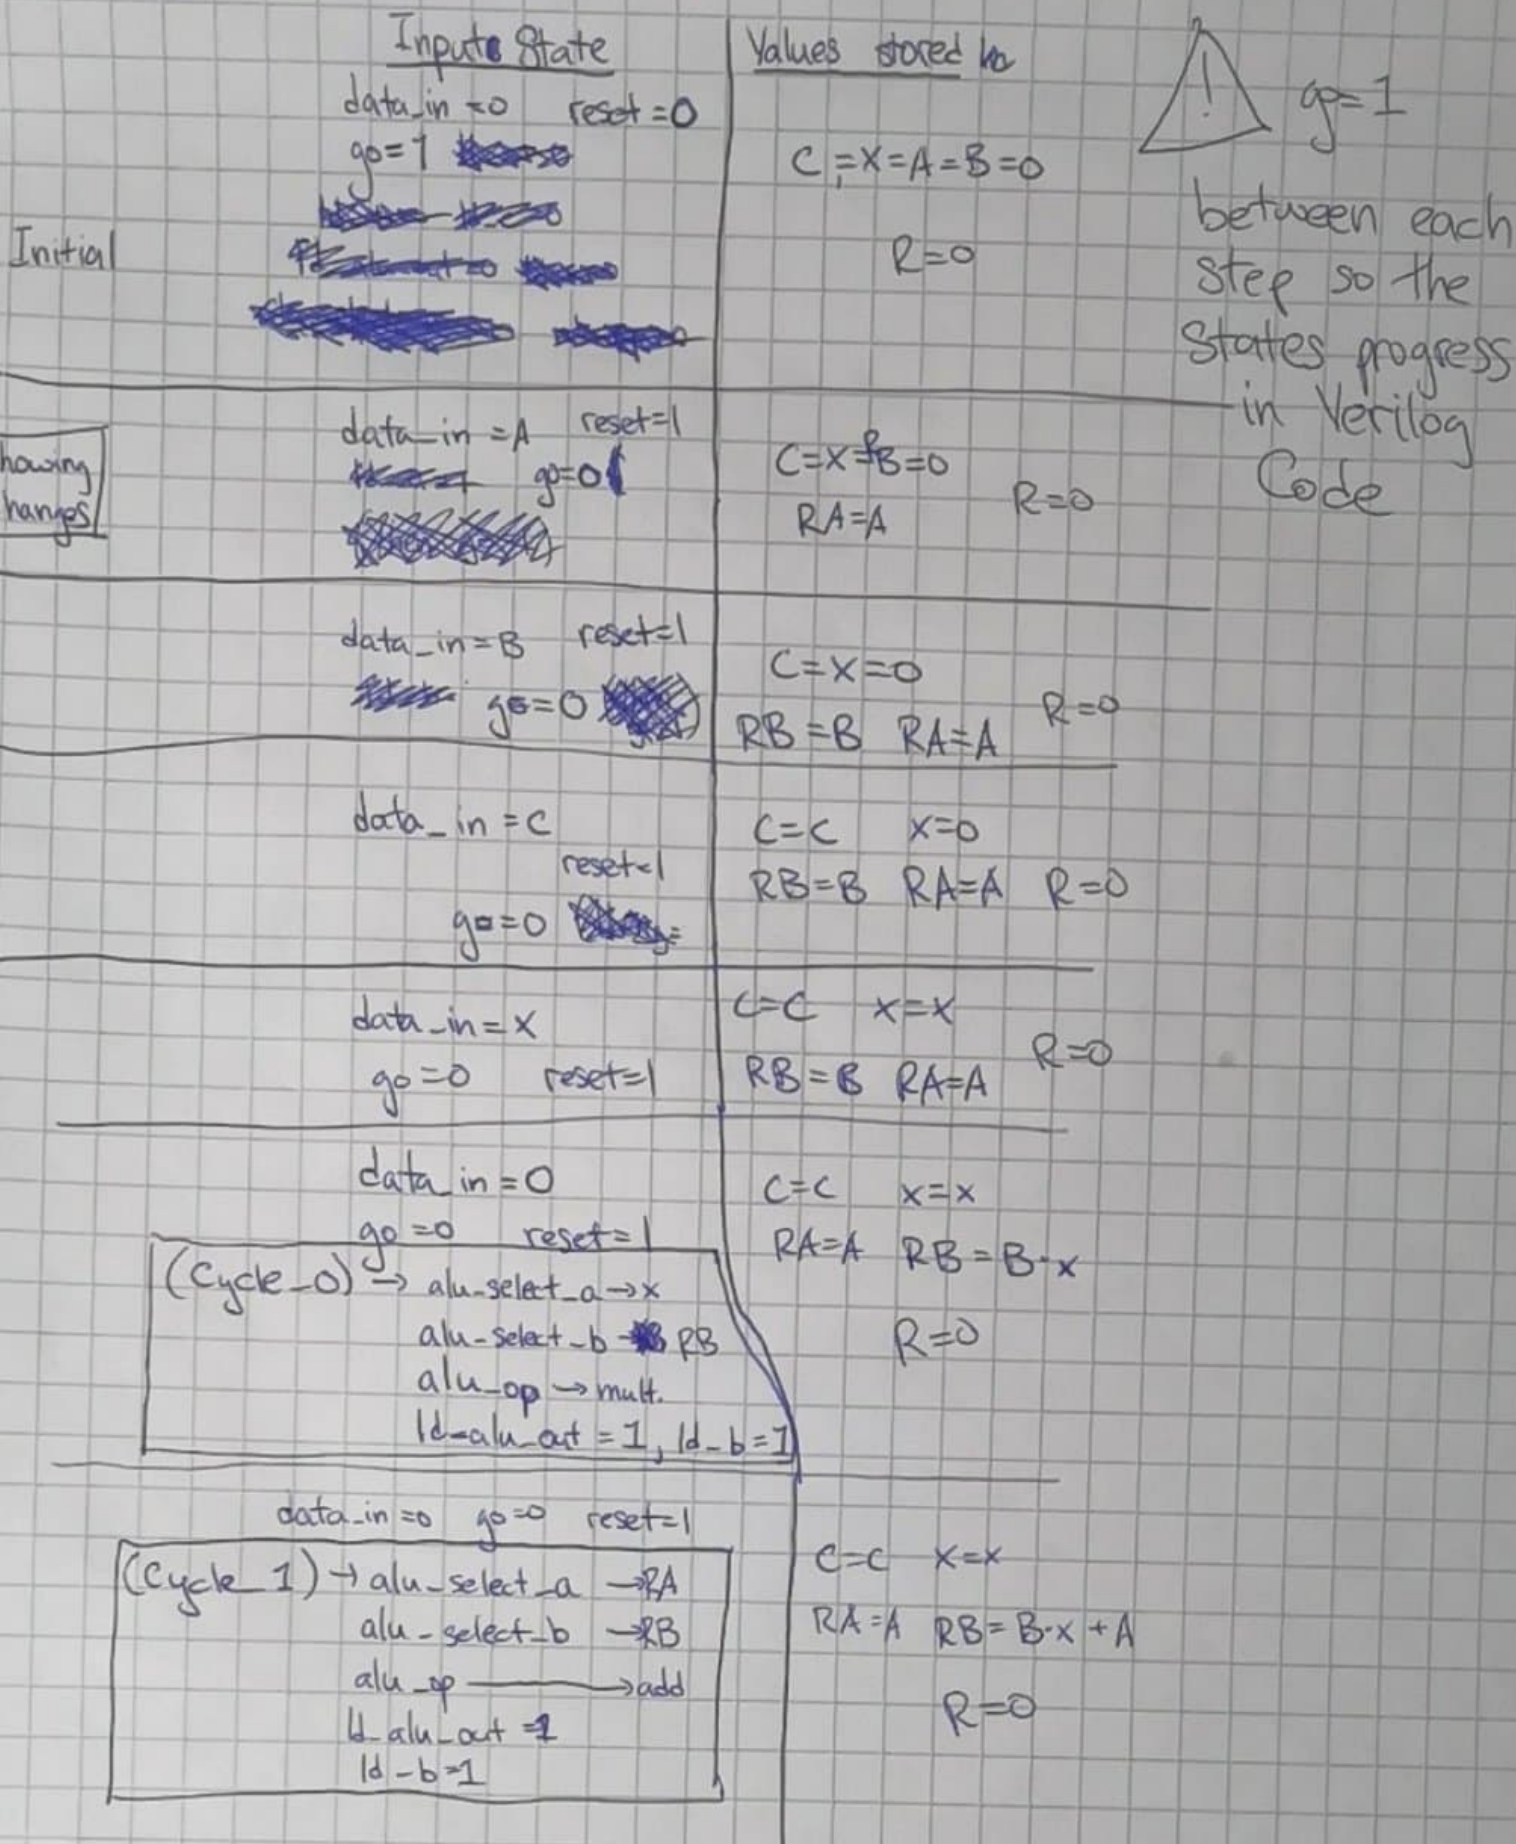 Inputs State
Values stored in
data_in=0 reset=0
go=1
C=X=A=B=0
Initial
R=0
go=1
between each
step so the
States progress
in Verilog
Code
howing
hanges
data_in=A reset=1
go=0
C=X=B=0
RA=A R=0
data_in=B reset=1
go=0
C=X=0
RB=B RA=A R=0
data_in=C
reset=1
go=0
C=C X=0
RB=B RA=A R=0
data_in=X
go=0 reset=1
C=C X=X
RB=B RA=A R=0
data_in=0
go=0 reset=1
(Cycle_0) → alu_select_a→x
alu-select_b RB
alu_op → mult.
ld-alu_out=1, ld_b=1
C=C X=X
RA=A RB=B·x
R=0
data_in=0 go=0 reset=1
(Cycle_1) → alu_select_a →RA
alu_select_b →RB
alu_op → add
ld_alu_out=1
ld-b=1
C=C X=X
RA=A RB=B·x+A
R=0
!